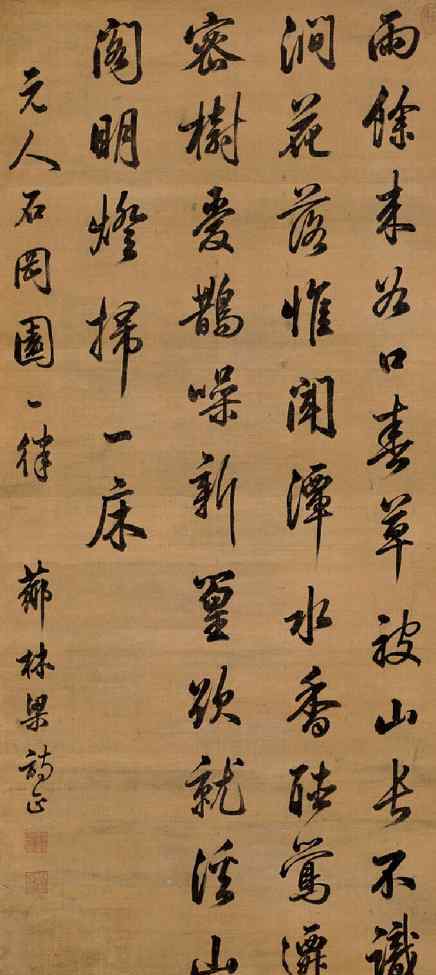 雨餘来谷口春草被山長不識
澗花落惟聞潭水香聽鶯
密樹愛鵲噪新篁欲就溪山
閣明燈掃一床
元人石岡園一律
薌林梁詩正